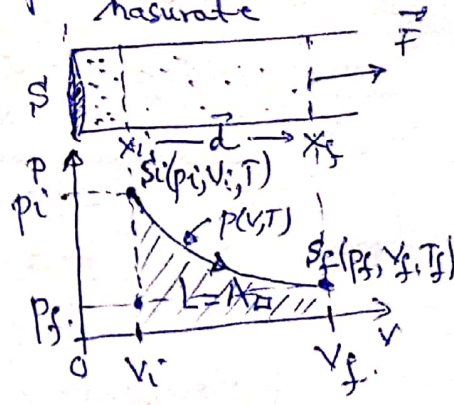 hasurate
F
S
xi d xf
p
pi Si(pi,Vi,T)
p(V,T)
Sf(pf,Vf,Tf)
L=A
pf
0 Vi Vf V